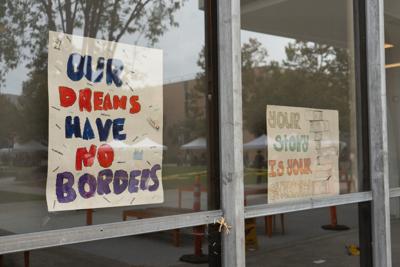 OUR
DREAMS
HAVE
NO
BORDERS
YOUR
STORY
IS YOUR